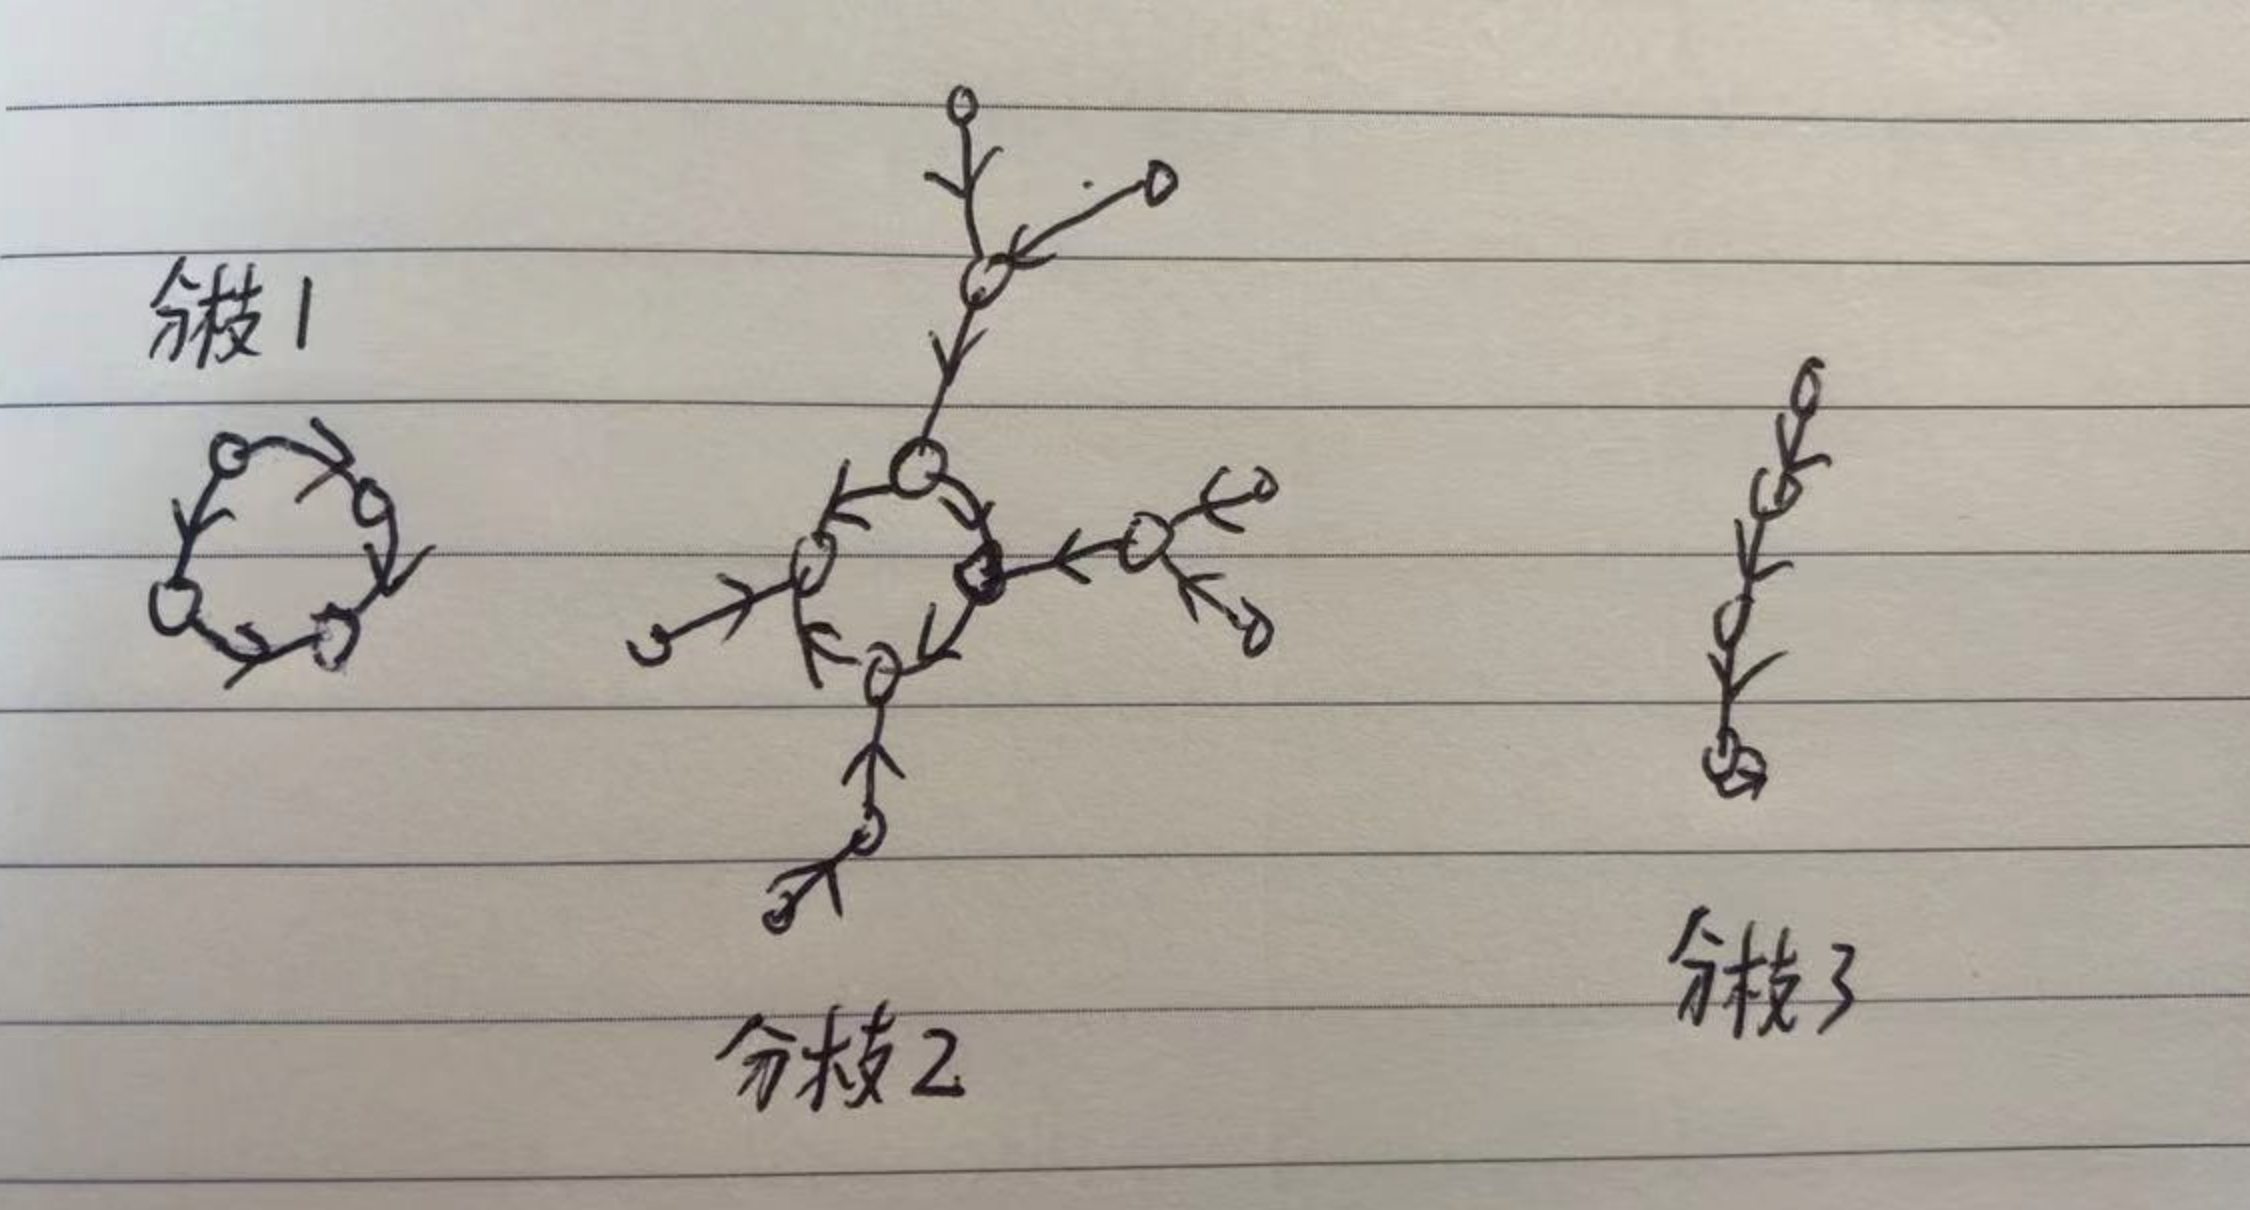 分枝1
分枝2
分枝3